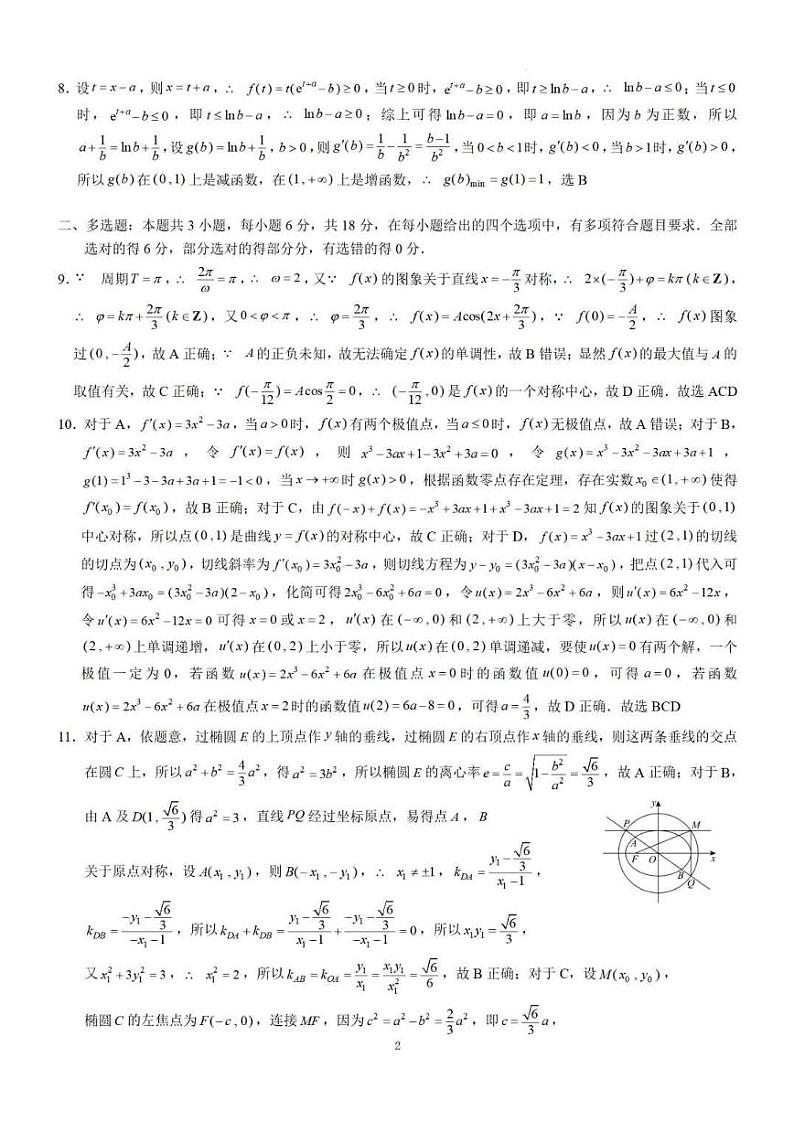 8. 设 t = x − a，则 x = t + a，∴ f(t) = t(e^{t+a} − b) ≥ 0，当 t ≥ 0 时，e^{t+a} − b ≥ 0，即 t ≥ ln b − a，∴ ln b − a ≤ 0；当 t ≤ 0
时，e^{t+a} − b ≤ 0，即 t ≤ ln b − a，∴ ln b − a ≥ 0；综上可得 ln b − a = 0，即 a = ln b，因为 b 为正数，所以
a + 1/b = ln b + 1/b，设 g(b) = ln b + 1/b，b > 0，则 g′(b) = 1/b − 1/b² = (b−1)/b²，当 0 < b < 1 时，g′(b) < 0，当 b > 1 时，g′(b) > 0，
所以 g(b) 在 (0,1) 上是减函数，在 (1,+∞) 上是增函数，∴ g(b)_{min} = g(1) = 1，选 B
二、多选题：本题共 3 小题，每小题 6 分，共 18 分，在每小题给出的四个选项中，有多项符合题目要求．全部
选对的得 6 分，部分选对的得部分分，有选错的得 0 分．
9. ∵ 周期 T = π，∴ 2π/ω = π，∴ ω = 2，又∵ f(x) 的图象关于直线 x = −π/3 对称，∴ 2×(−π/3) + φ = kπ (k ∈ Z)，
∴ φ = kπ + 2π/3 (k ∈ Z)，又 0 < φ < π，∴ φ = 2π/3，∴ f(x) = A cos(2x + 2π/3)，∵ f(0) = −A/2，∴ f(x) 图象
过 (0, −A/2)，故 A 正确；∵ A 的正负未知，故无法确定 f(x) 的单调性，故 B 错误；显然 f(x) 的最大值与 A 的
取值有关，故 C 正确；∵ f(−π/12) = A cos π/2 = 0，∴ (−π/12, 0) 是 f(x) 的一个对称中心，故 D 正确．故选 ACD
10. 对于 A，f′(x) = 3x² − 3a，当 a > 0 时，f(x) 有两个极值点，当 a ≤ 0 时，f(x) 无极值点，故 A 错误；对于 B，
f′(x) = 3x² − 3a，令 f′(x) = f(x)，则 x³ − 3ax + 1 − 3x² + 3a = 0，令 g(x) = x³ − 3x² − 3ax + 3a + 1，
g(1) = 1³ − 3 − 3a + 3a + 1 = −1 < 0，当 x → +∞ 时 g(x) > 0，根据函数零点存在定理，存在实数 x₀ ∈ (1,+∞) 使得
f′(x₀) = f(x₀)，故 B 正确；对于 C，由 f(−x) + f(x) = −x³ + 3ax + 1 + x³ − 3ax + 1 = 2 知 f(x) 的图象关于 (0,1)
中心对称，所以点 (0,1) 是曲线 y = f(x) 的对称中心，故 C 正确；对于 D，f(x) = x³ − 3ax + 1 过 (2,1) 的切线
的切点为 (x₀, y₀)，切线斜率为 f′(x₀) = 3x₀² − 3a，则切线方程为 y − y₀ = (3x₀² − 3a)(x − x₀)，把点 (2,1) 代入可
得 −x₀³ + 3ax₀ = (3x₀² − 3a)(2 − x₀)，化简可得 2x₀³ − 6x₀² + 6a = 0，令 u(x) = 2x³ − 6x² + 6a，则 u′(x) = 6x² − 12x，
令 u′(x) = 6x² − 12x = 0 可得 x = 0 或 x = 2，u′(x) 在 (−∞,0) 和 (2,+∞) 上大于零，所以 u(x) 在 (−∞,0) 和
(2,+∞) 上单调递增，u′(x) 在 (0,2) 上小于零，所以 u(x) 在 (0,2) 单调递减，要使 u(x) = 0 有两个解，一个
极值一定为 0，若函数 u(x) = 2x³ − 6x² + 6a 在极值点 x = 0 时的函数值 u(0) = 0，可得 a = 0，若函数
u(x) = 2x³ − 6x² + 6a 在极值点 x = 2 时的函数值 u(2) = 6a − 8 = 0，可得 a = 4/3，故 D 正确．故选 BCD
11. 对于 A，依题意，过椭圆 E 的上顶点作 y 轴的垂线，过椭圆 E 的右顶点作 x 轴的垂线，则这两条垂线的交点
在圆 C 上，所以 a² + b² = 4/3 a²，得 a² = 3b²，所以椭圆 E 的离心率 e = c/a = √(1 − b²/a²) = √6/3，故 A 正确；对于 B，
由 A 及 D(1, √6/3) 得 a² = 3，直线 PQ 经过坐标原点，易得点 A，B
关于原点对称，设 A(x₁, y₁)，则 B(−x₁, −y₁)，∴ x₁ ≠ ±1，k_{DA} = (y₁ − √6/3)/(x₁ − 1)，
k_{DB} = (−y₁ − √6/3)/(−x₁ − 1)，所以 k_{DA} + k_{DB} = (y₁ − √6/3)/(x₁ − 1) + (−y₁ − √6/3)/(−x₁ − 1) = 0，所以 x₁y₁ = √6/3，
又 x₁² + 3y₁² = 3，∴ x₁² = 2，所以 k_{AB} = k_{OA} = y₁/x₁ = x₁y₁/x₁² = √6/6，故 B 正确；对于 C，设 M(x₀, y₀)，
椭圆 C 的左焦点为 F(−c, 0)，连接 MF，因为 c² = a² − b² = 2/3 a²，即 c = √6/3 a，
y
P
M
A
F
O
x
B
Q
2